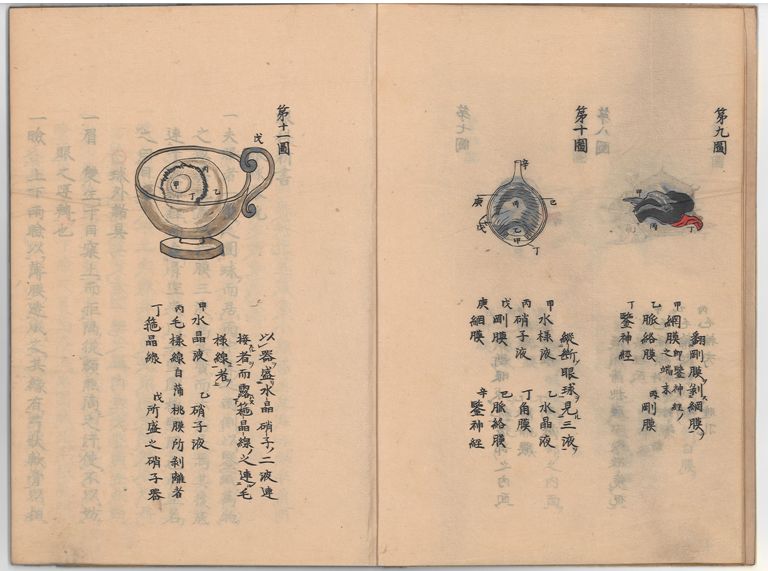 第九圖
甲
丙
丁
翻剛膜ヲ剝網膜ヲ
甲網膜即鑒神經ノ之端末
乙脈絡膜 丙剛膜
丁鑒神經
第十圖
辛
庚
己
甲
戊
乙
甲
丁
縱斷ノ眼球ヲ見ル三液ヲ
甲水樣液 乙水晶液
丙硝子液 丁角膜
戊剛膜 己脈絡膜
庚網膜 辛鑒神經
第十一圖
戊
丙
甲
乙
丁
以器盛水晶硝子ノ二液連
接者而露箍晶線ノ之連毛
樣線者
甲水晶液 乙硝子液
丙毛樣線自蒲桃膜所剝離者
丁箍晶線 戊所盛之硝子器